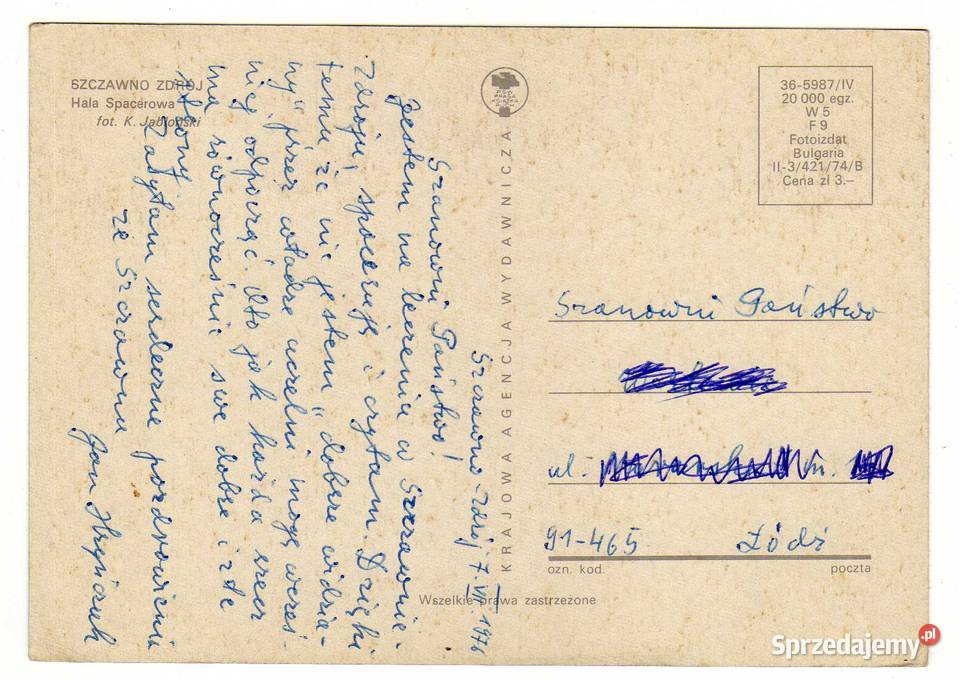 SZCZAWNO ZDRÓJ
Hala Spacerowa
fot. K. Jabłoński
Szczawno-Zdrój 7.VII.1976
Szanowni Państwo!
Jestem na leczeniu w Szczawnie-
Zdroju, spaceruję i czytam. Dzięki
temu, że nie jestem "dobrze widzia-
ny" przez władze uczelni mogę wcześ-
niej odpocząć. Oto jak każda rzecz
ma równocześnie swe dobre i złe
strony.
Załączam serdeczne pozdrowienia
ze Szczawna
Jan
KRAJOWA AGENCJA WYDAWNICZA
PSW
PRASA
KSIĄŻKA
RUCH
36-5987/IV
20 000 egz.
W 5
F 9
Fotoizdat
Bulgaria
II-3/421/74/B
Cena zł 3.—
Szanowni Państwo
ul.
m.
91-465 Łódź
ozn. kod. poczta
Wszelkie prawa zastrzeżone
Sprzedajemy.pl